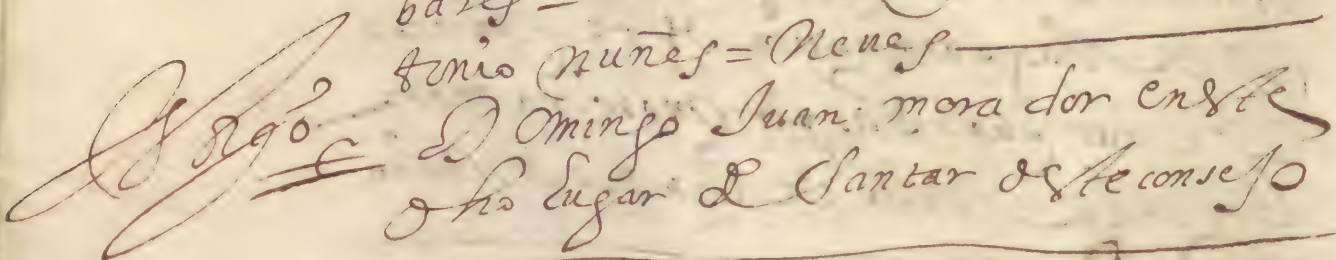 bares =
tonio nuñes = Neues
tstigo Domingo Juan morador eneste
dho lugar de Santar deste consejo